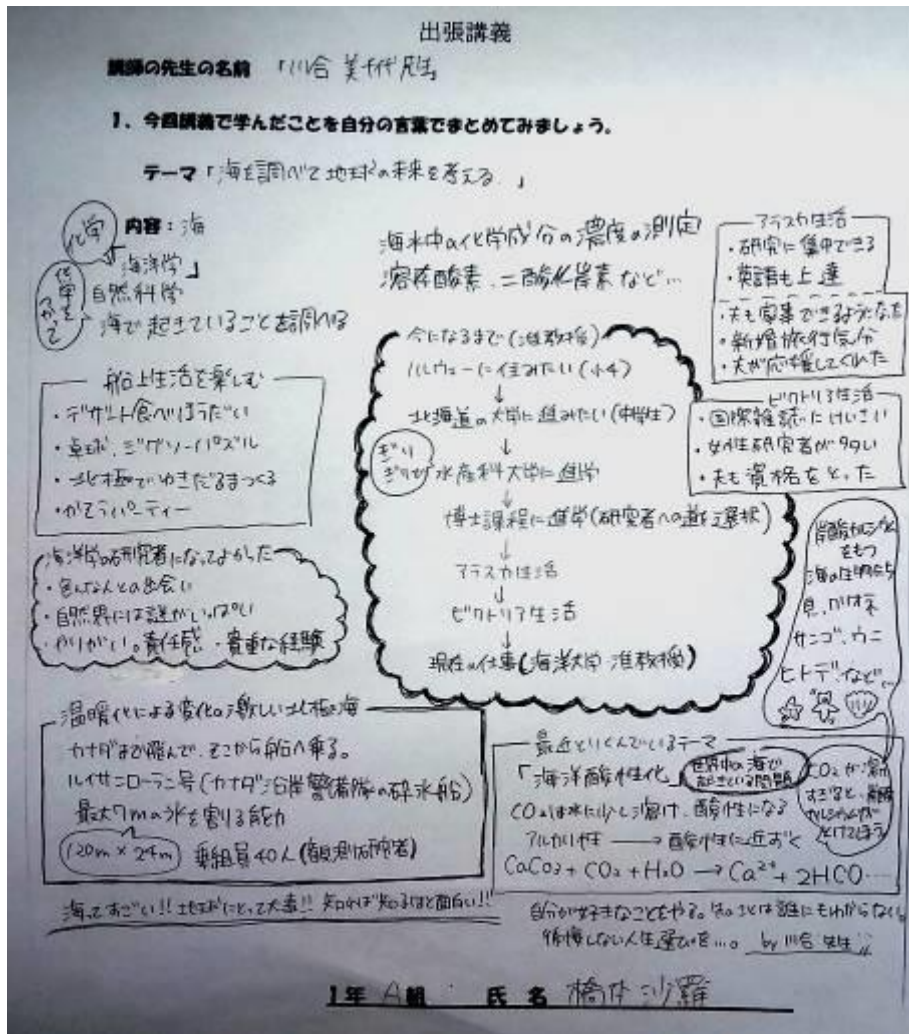 出張講義
講師の先生の名前 「川合 美千代先生」
1. 今回講義で学んだことを自分の言葉でまとめてみましょう。
テーマ「海を調べて地球の未来を考える。」
内容:海
化学
「海洋学」
化学をつかって
自然科学
海で起きていることを調べる
海水中の化学成分の濃度の測定
溶存酸素、二酸化炭素など…
アラスカ生活
・研究に集中できる
・英語も上達
・夫も家事できるようになった
・新婚旅行気分
・夫が応援してくれた
船上生活を楽しむ
・デザート食べほうだい
・卓球、ジグソーパズル
・北極でゆきだるまつくる
・かそうパーティー
今になるまで(准教授)
ノルウェーに住みたい(小4)
↓
北海道の大学に進みたい(中学生)
↓
ぎりぎりで
水産科大学に進学
↓
博士課程に進学(研究者への道を選択)
↓
アラスカ生活
↓
ビクトリア生活
↓
現在の仕事(海洋大学 准教授)
ビクトリア生活
・国際雑誌にけいさい
・女性研究者が多い
・夫も資格をとった
海洋学の研究者になってよかった
・色んな人との出会い
・自然界には謎がいっぱい
・やりがい。責任感 ・貴重な経験
炭酸カルシウム
をもつ
海の生物たち
貝、
サンゴ、ウニ
ヒトデ、など…
温暖化による変化の激しい北極海
カナダまで飛んで、そこから船へ乗る。
ルイサンローラン号(カナダ沿岸警備隊の砕氷船)
最大7mの氷を割る能力
120m×24m
乗組員40人(観測研究者)
最近とりくんでいるテーマ
「海洋酸性化」
世界中の海で
起きている問題
CO₂は水に少し溶け、酸性になる
アルカリ性 → 酸性に近づく
CaCO₃ + CO₂ + H₂O → Ca²⁺ + 2HCO…
CO₂が溶け
すぎると、炭酸
カルシウムが
とけてしまう
海ってすごい!! 地球にとって大事!! 知れば知るほど面白い!!
自分が好きなことをやる。先のことは誰にもわからない。
後悔しない人生選びを…。 by 川合先生
1年 A組 氏名 橋本 沙羅